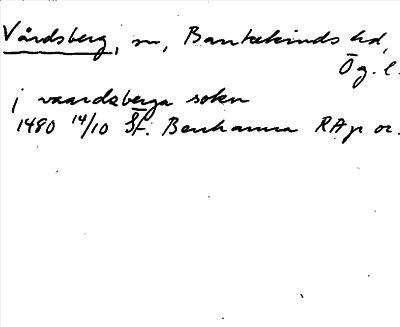 Vårdsberg, sn, Bankekinds hd,
Ög. l.
j vaardzberga sokn
1480 14/10 St. Benhamra RAp or.